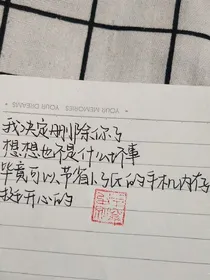 YOUR MEMORIES
YOUR DREAMS
我决定删除你了
想想也不是什么坏事
毕竟可以节省1.5K的手机内存
挺开心的